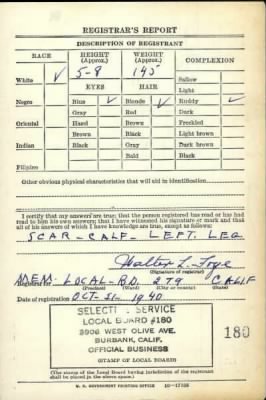 REGISTRAR'S REPORT
DESCRIPTION OF REGISTRANT
RACE HEIGHT (Approx.) WEIGHT (Approx.) COMPLEXION
White ✓ 5-8 145 Sallow
EYES HAIR Light
Negro Blue ✓ Blonde ✓ Ruddy ✓
Gray Red Dark
Oriental Hazel Brown Freckled
Brown Black Light brown
Indian Black Gray Dark brown
Bald Black
Filipino
Other obvious physical characteristics that will aid in identification
I certify that my answers are true; that the person registered has read or has had
read to him his own answers; that I have witnessed his signature or mark and that
all of his answers of which I have knowledge are true, except as follows:
SCAR-CALF-LEFT. LEG
Walter L.
(Signature of registrar)
MEM. LOCAL-BD. 179 CALIF
(Precinct) (Ward) (City or county) (State)
Date of registration OCT-31-1940
SELECTIVE SERVICE
LOCAL BOARD #180
WEST OLIVE AVE.
BURBANK, CALIF.
OFFICIAL BUSINESS
180
(STAMP OF LOCAL BOARD)
(The stamp of the Local Board having jurisdiction of the registrant
shall be placed in the above space.)
U. S. GOVERNMENT PRINTING OFFICE 16-17105